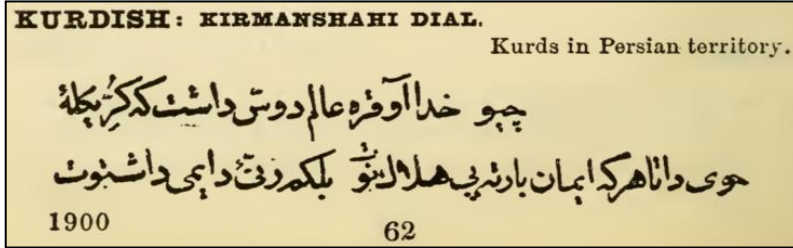 KURDISH: KIRMANSHAHI DIAL.
Kurds in Persian territory.
چیو خدا آوقره عالم دوس داشت که کُرِّ یکلهٔ
خوی داتا هرکه ایمان بارنه پی هلال نوّ بلکم زنیّ دایمی داشتوت
1900
62